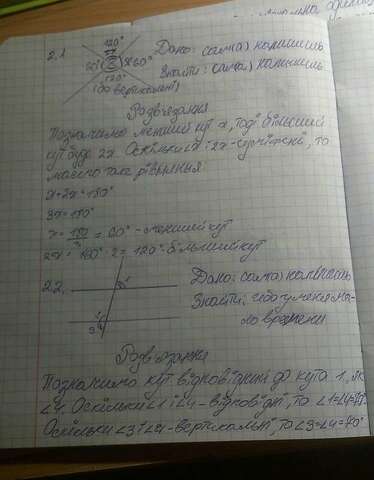 2.1
120°
60° 60°
120°
(бо вертикальні)
Дано: сама) напишешь
Знайти: сама) напишешь
Розв'язання
Позначимо менший кут x, тоді більший
кут буде 2x. Оскільки x і 2x - суміжні, то
маємо таке рівняння
x+2x=180°
3x=180°
x = 180/3 = 60° - менший кут
2x = 60° · 2 = 120° - більший кут
2.2.
1
4
3
Дано: сама) напишешь
Знайти: ибо у меня ма-
ло времени
Розв'язання
Позначимо кут відповідний до кута 1, як
∠4. Оскільки ∠1 і ∠4 - відповідні, то ∠1=∠4=70°
Оскільки ∠3 і ∠4 - вертикальні, то ∠3=∠4=70°